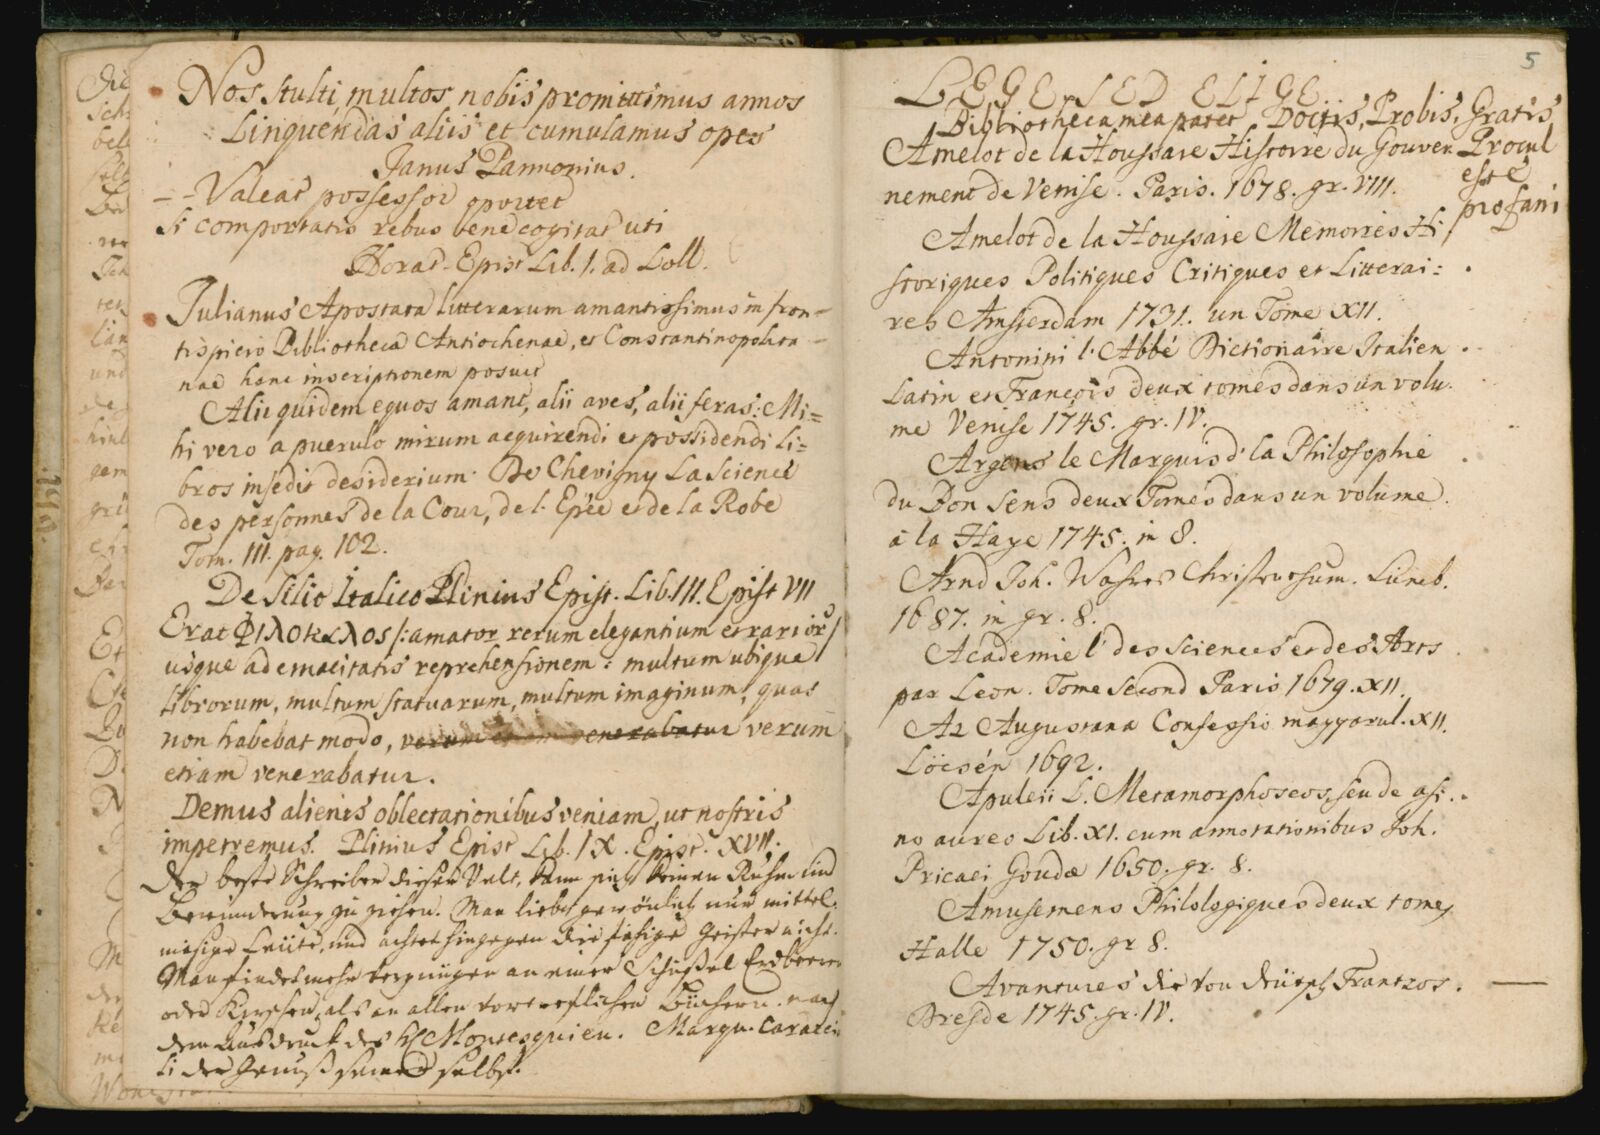 Nos stulti multos nobis promittimus annos
Linquendas aliis et cumulamus opes
Janus Pannonius.
-- Valeat possessor oportet
Si comportatis rebus bene cogitat uti
Horat. Epist Lib. 1. ad Loll.
Julianus Apostata litterarum amantissimus in fron-
tispicio Bibliothecae Antiochenae, et Constantinopolita-
nae hanc inscriptionem posuit
Alii quidem equos amant, alii aves, alii feras: Mi=
hi vero a puerulo mirum acquirendi et possidendi Li=
bros insedit desiderium. De Chevigny La Science
des personnes de la Cour, de l'Epée et de la Robe
Tom. III. pag. 102.
De Silio Italico Plinius Epist. Lib. III. Epist VII
Erat Φιλοκαλος /: amator rerum elegantium et rarior /
usque ad emacitatis reprehensionem: multum ubique
librorum, multum statuarum, multum imaginum, quas
non habebat modo, venerabatur verum
etiam venerabatur.
Demus alienis oblectationibus veniam, ut nostris
impetremus. Plinius Epist Lib. IX. Epist. XVII.
Der beste Schreiber dieser Welt, kann sich keinen Ruhm und
Bewunderung zu ziehen. Man liebet gewönlich nur mittel-
mäsige Leüte, und achtet hingegen die fähige Geister nicht.
Man findet mehr vergnügen an einer Schüssel Erdbeeren
oder Kirschen, als an allen vortreflichen Büchern. nach
dem Ausdruck des H Montesquieu. Marqu. Caracio
li der Genuß seiner selbst.
5
LEGE SED ELIGE
Bibliotheca mea patet Doctis, Probis, Gratis,
Procul
este
profani
Amelot de la Houssaie Histoire du Gouver
nement de Venise. Paris. 1678. gr. VIII.
Amelot de la Houssaie Memoires Hi
storiques Politiques Critiques et Litterai=
res Amsterdam 1731. un Tome XII.
Antonini l'Abbé Dictionaire Italien
Latin et François deux tomes dans un volu.
me Venise 1745. gr. IV.
Argens le Marquis d' la Philosophie
du Bon Sens deux Tomes dans un volume.
à la Haye 1745. in 8.
Arnd Joh. Wahres Christenthum. Lüneb.
1687. in gr. 8.
Academie l' des Sciences et des Arts
par Leon. Tome second Paris 1679. XII.
Az Augustana Confessio magyarul. XII.
Löcsén 1692.
Apuleii L. Metamorphoseos, seu de asi.
no aureo Lib. XI. cum annotationibus Joh.
Pricaei Goudae 1650. gr. 8.
Amusemens Philologiques deux tomes
Halle 1750. gr 8.
Avantures die von deütsch Frantzos.
Dresde 1745. gr. IV.